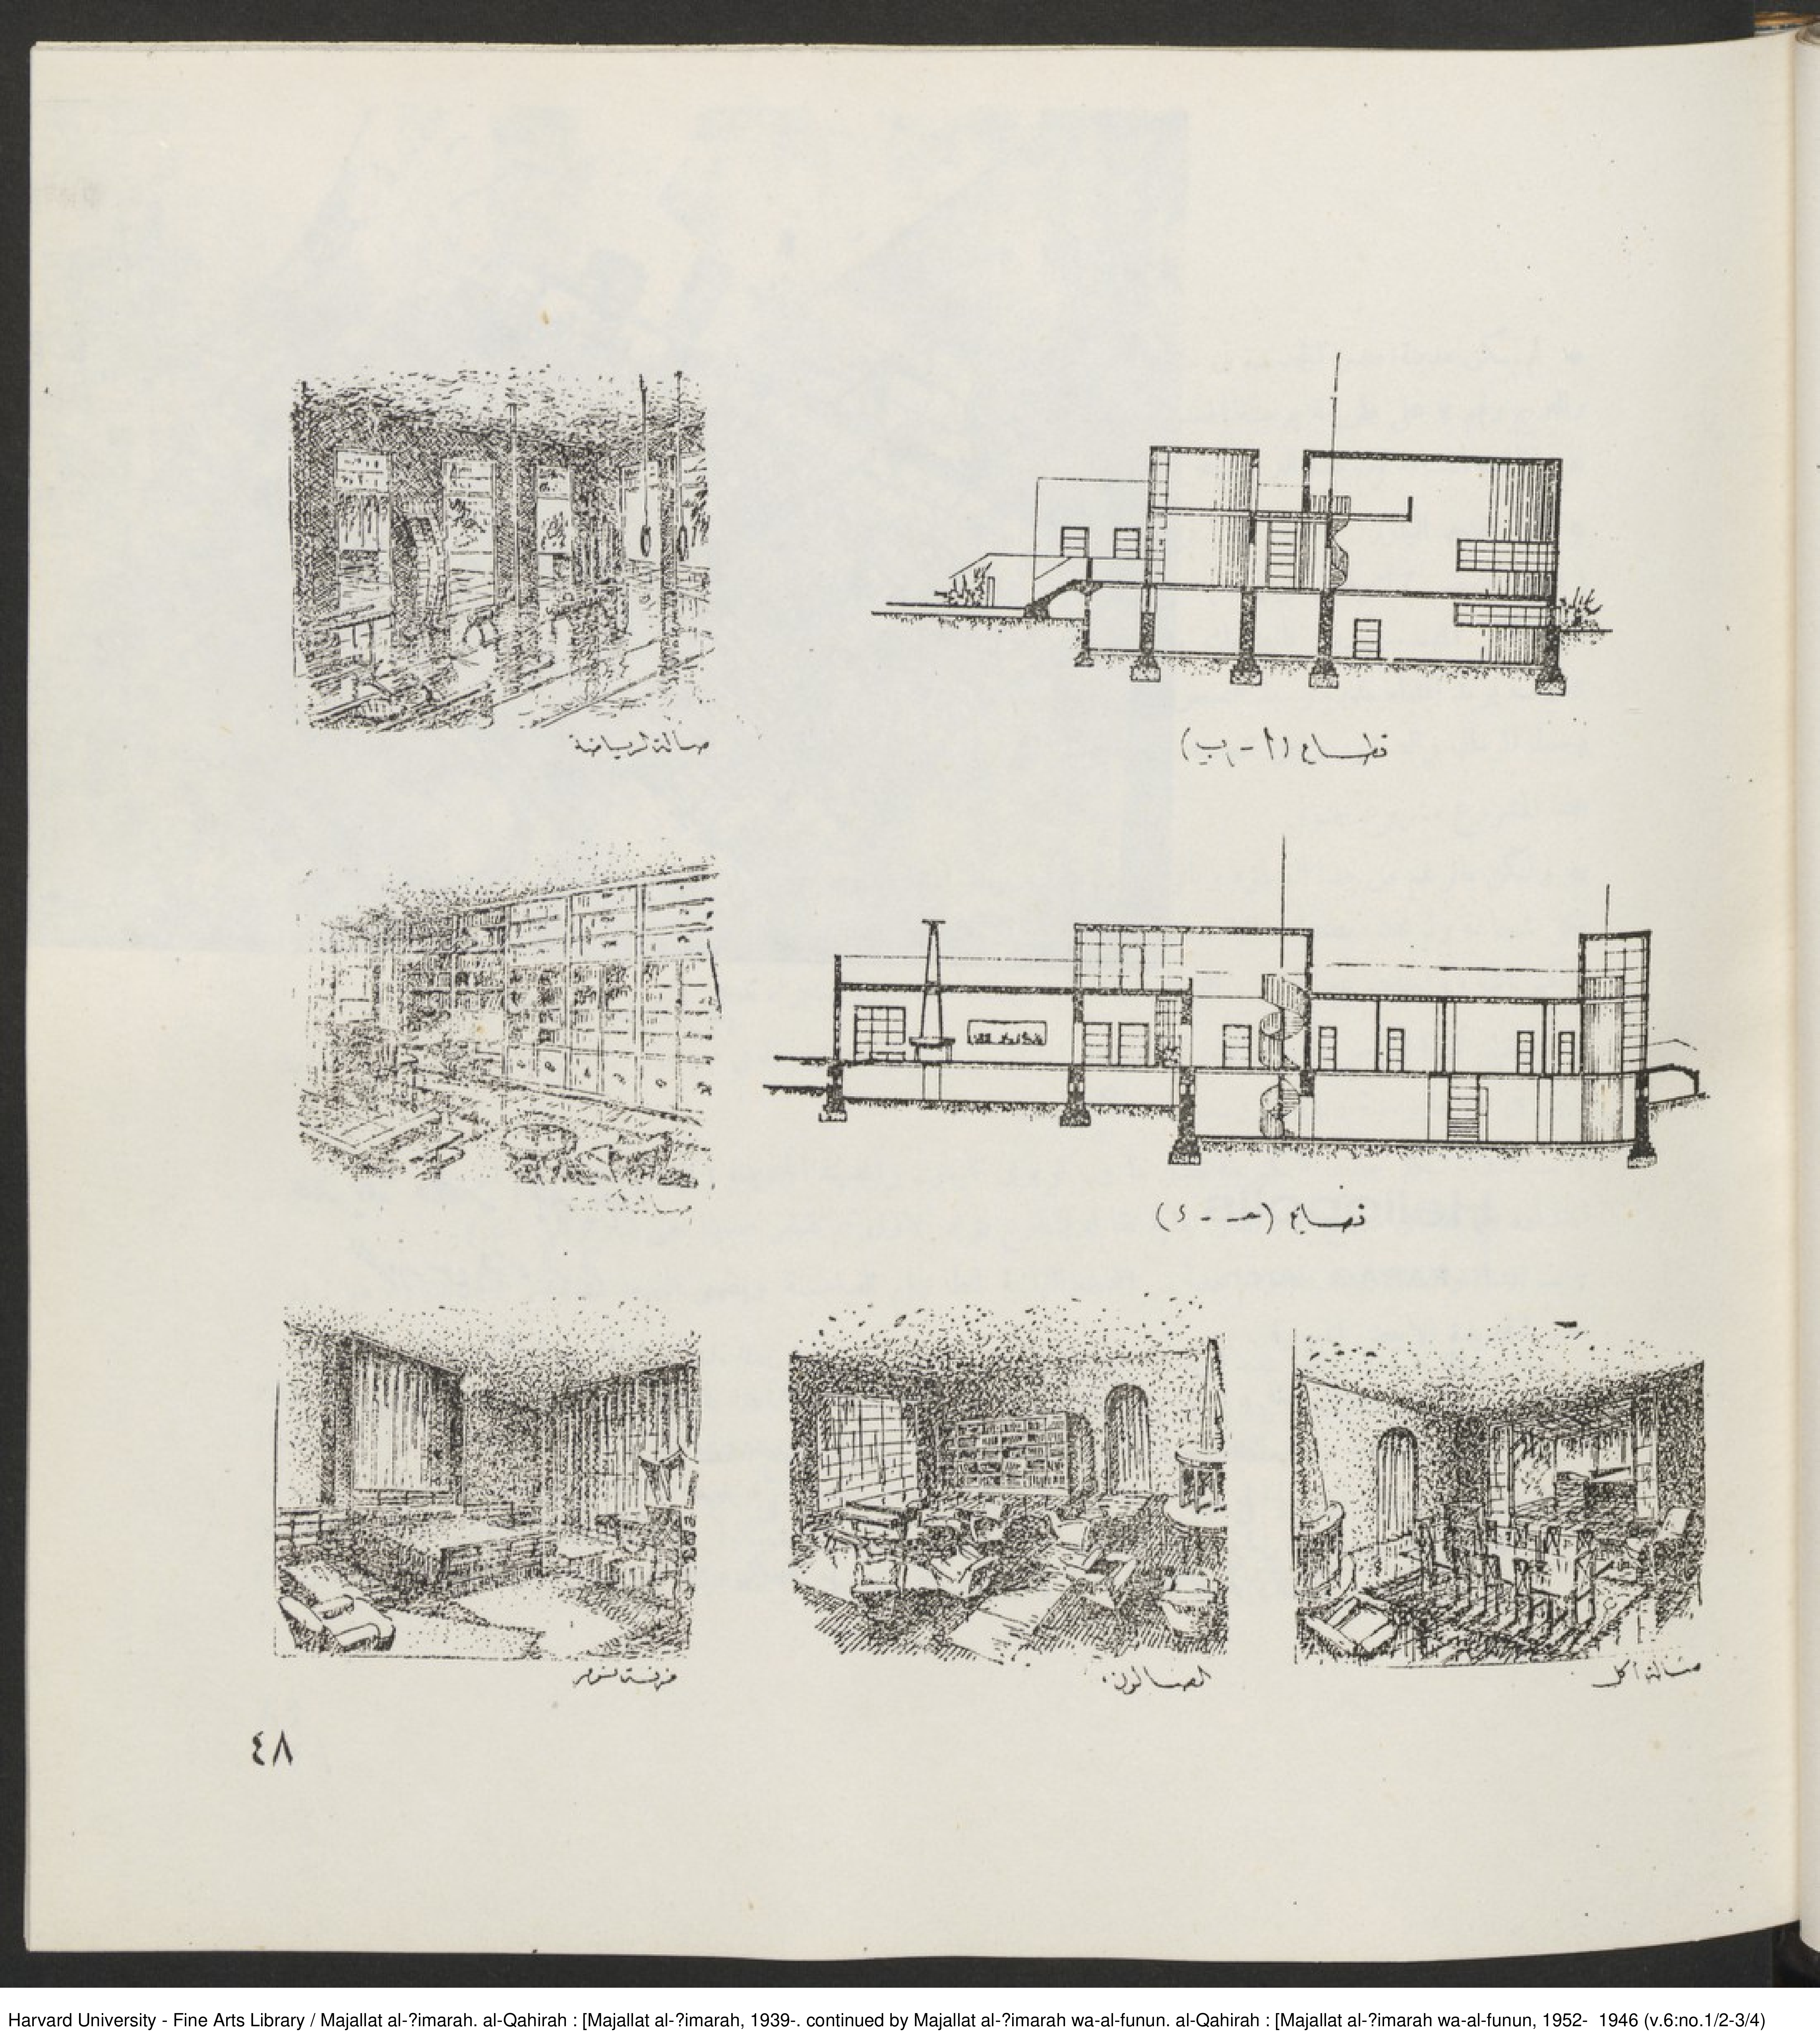 قطاع (أ - ب)
صالة الرياضة
قطاع (حـ - ء)
صالة
صالة أكل
الصالون
غرفة نوم
٤٨
Harvard University - Fine Arts Library / Majallat al-?imarah. al-Qahirah : [Majallat al-?imarah, 1939-. continued by Majallat al-?imarah wa-al-funun. al-Qahirah : [Majallat al-?imarah wa-al-funun, 1952- 1946 (v.6:no.1/2-3/4)